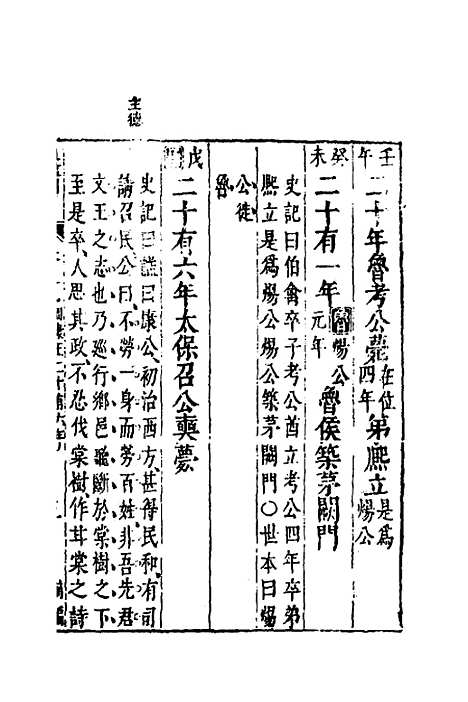 主德
壬午
二十年魯考公薨在位四年弟熈立是爲煬公
癸未
二十有一年煬公元年魯侯築茅闕門
史記曰伯禽卒子考公酋立考公四年卒弟
熈立是爲煬公煬公築茅闕門○世本曰煬
公徙魯
戊
二十有六年太保召公奭薨
史記曰譙曰康公初治西方甚得民和有司
請召民公曰不勞一身而勞百姓非吾先君
文王之志也乃廵行鄉邑聽斷於棠樹之下
至是卒人思其政不忍伐棠樹作甘棠之詩